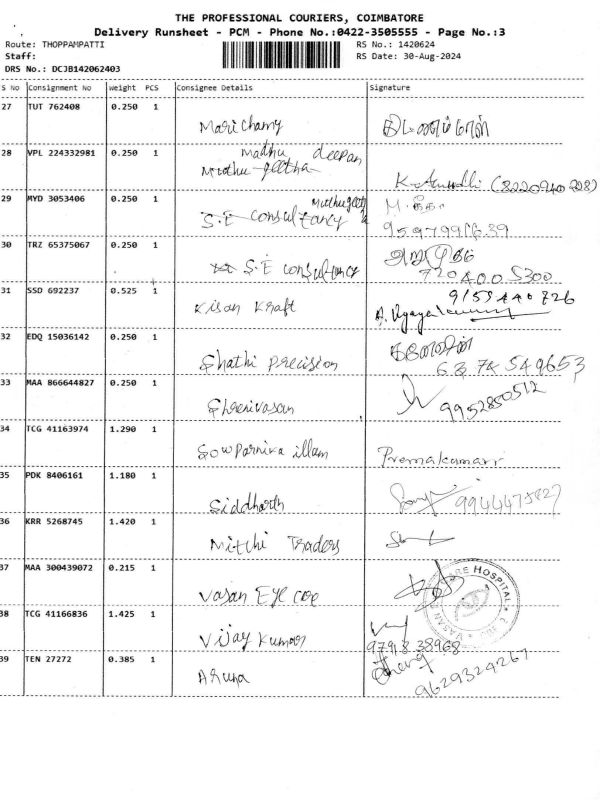 THE PROFESSIONAL COURIERS, COIMBATORE
Delivery Runsheet - PCM - Phone No.:0422-3505555 - Page No.:3
Route: THOPPAMPATTI RS No.: 1420624
Staff: RS Date: 30-Aug-2024
DRS No.: DCJB142062403
S No Consignment No Weight PCS Consignee Details Signature
27 TUT 762408 0.250 1
Marichamy
28 VPL 224332981 0.250 1
Madhu deepan
Muthu geetha
K. (8220940208)
29 MYD 3053406 0.250 1 Muthugeetha
S.E consultancy
30 TRZ 65375067 0.250 1
S.E consultancy அறுமுகம்
720400 5300
31 SSD 692237 0.525 1 9159440726
Kisan Kraft
32 EDQ 15036142 0.250 1
Shathi Precision 6374549653
33 MAA 866644827 0.250 1
Shrenivasan 9952850512
34 TCG 41163974 1.290 1
Sowparnika illam Premakumari
35 PDK 8406161 1.180 1
Siddharth
36 KRR 5268745 1.420 1
Mitthi Traders
37 MAA 300439072 0.215 1
Vasan Eye care HOSPITAL VASAN
38 TCG 41166836 1.425 1
Vijay Kumar 9791838968
39 TEN 27272 0.385 1
Aruna 9629329267